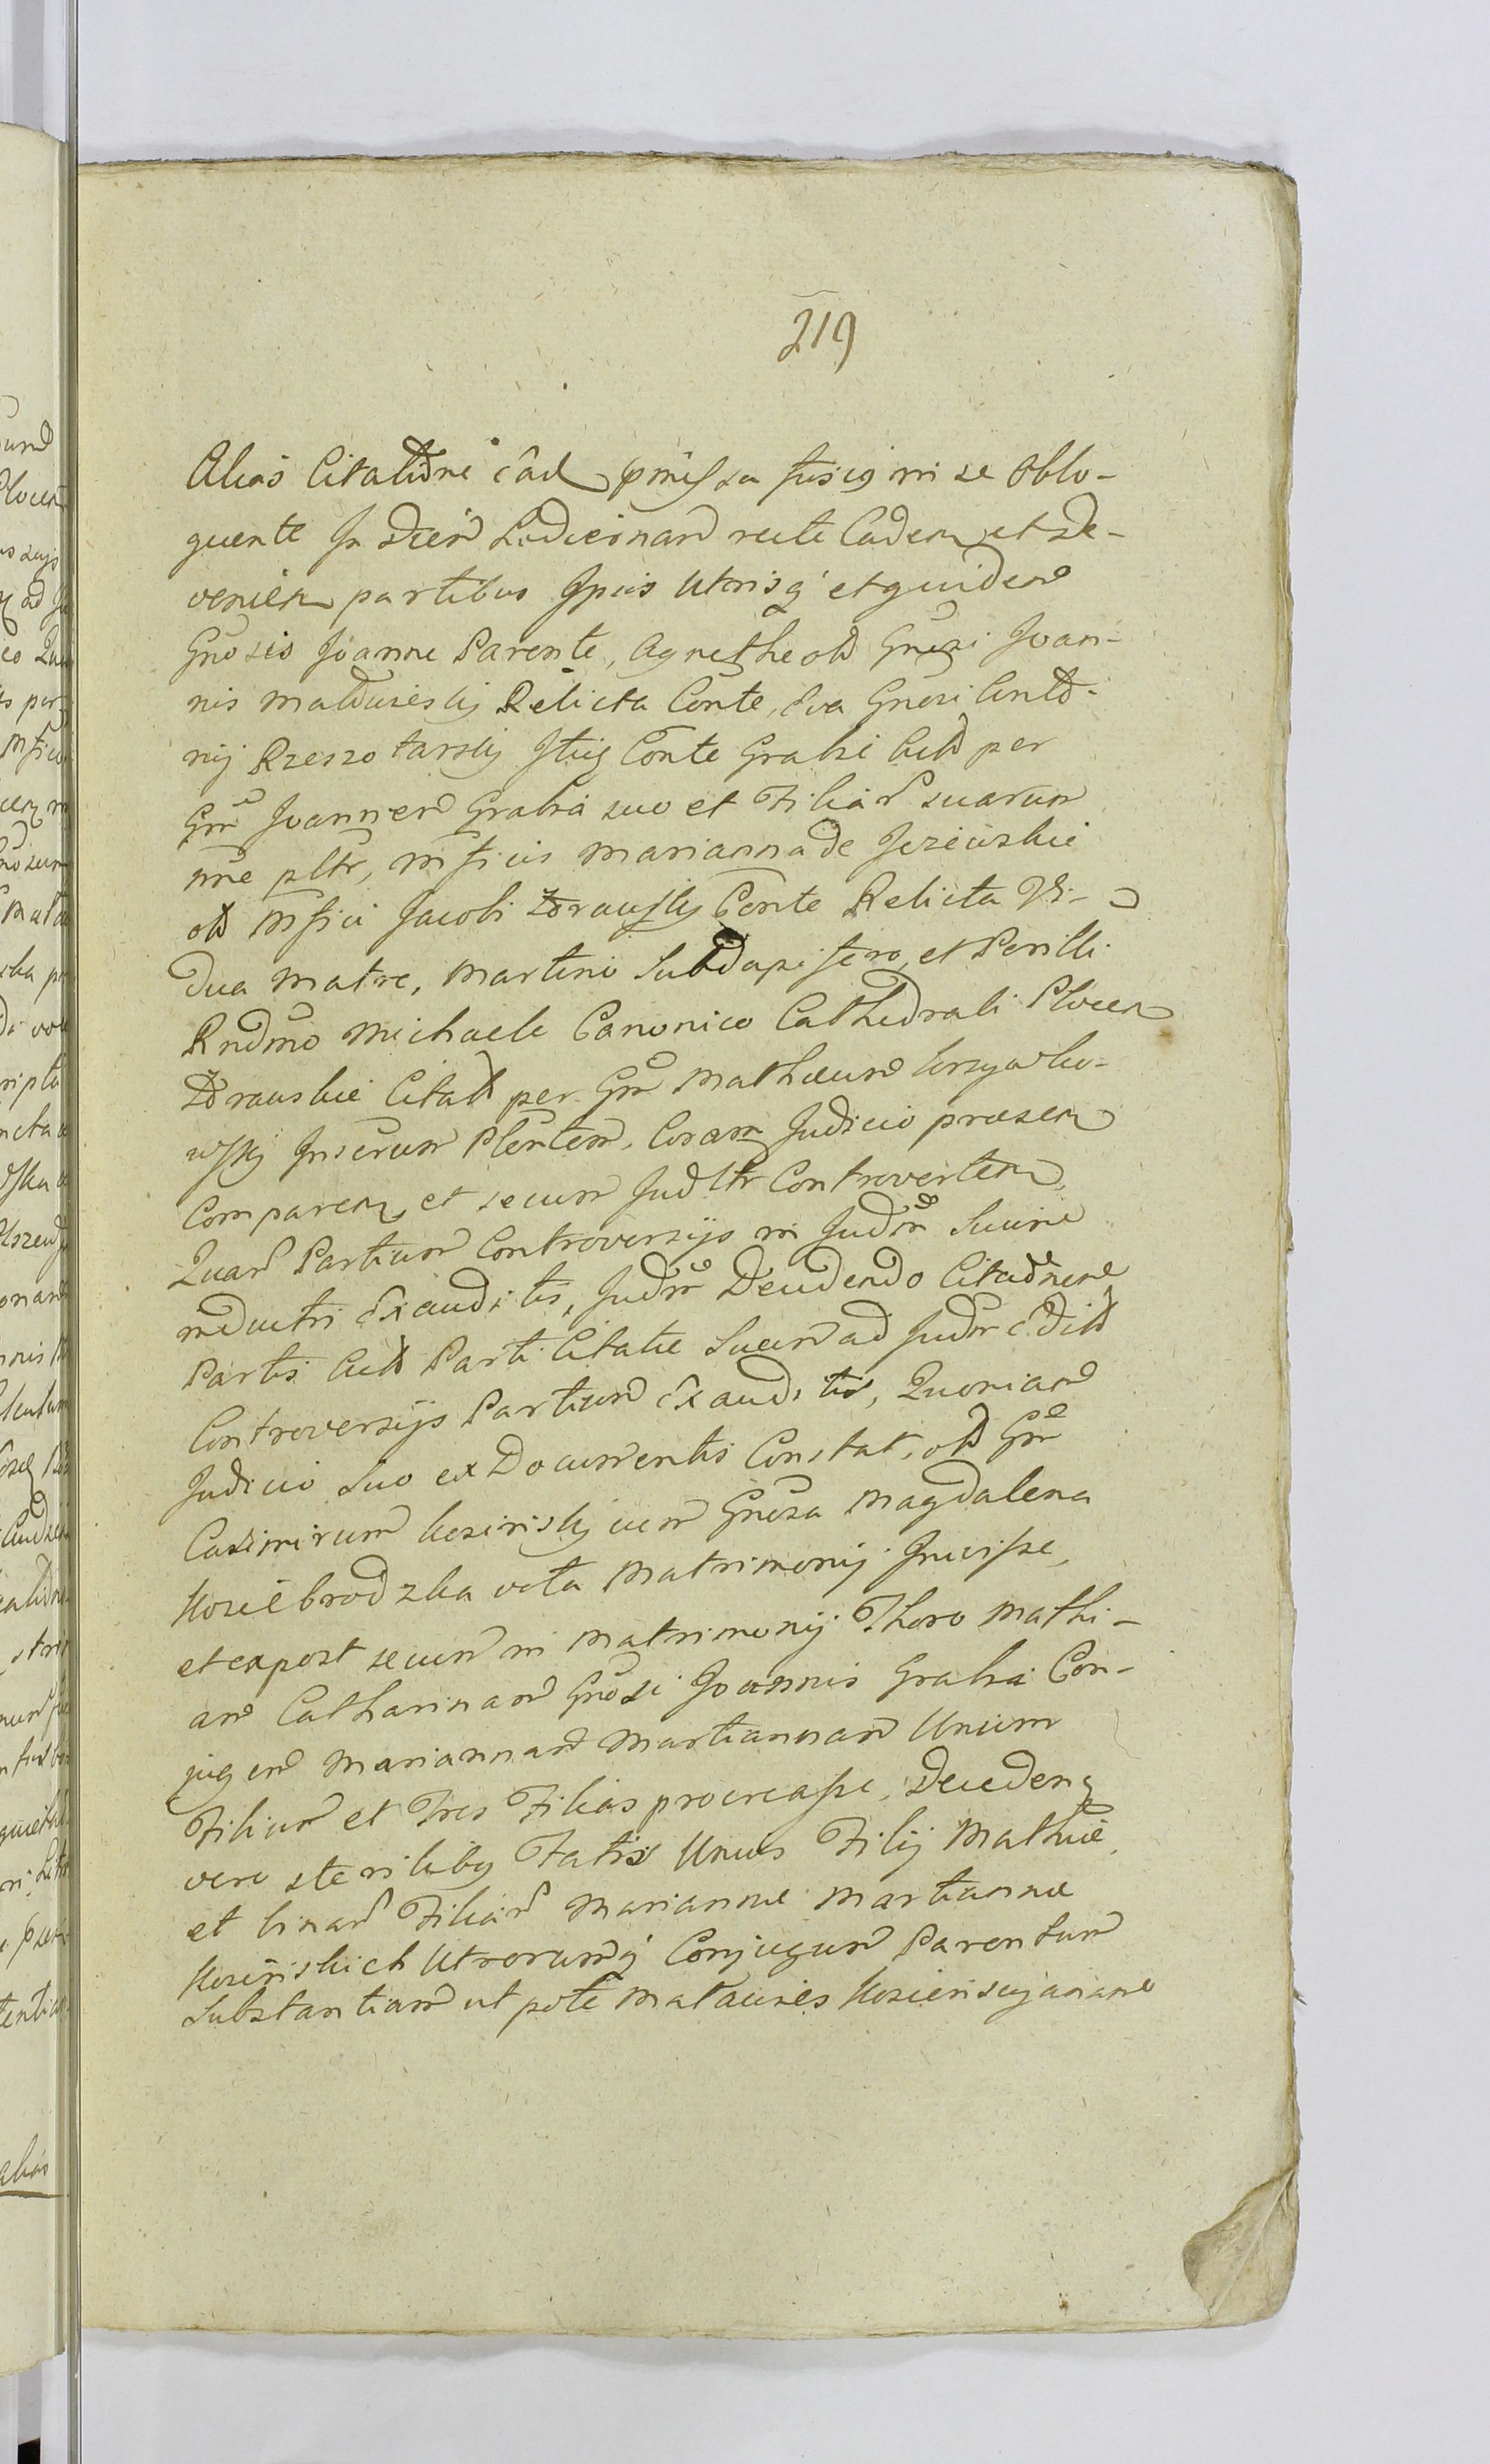 219
Alias Citatione ead pmissa fusig in se Oblo-
quente In diem hodiernam recte Caden et de-
venien partibus Ipsis Utrisq et quidem
Gnosis Joanne Parente, Agnethe olim Gnosi Joan-
nis Relicta Conte, Eva Gnosi Anto-
nij Rzeszotarskij Conte Grabie Actt per
Gnm Joannem Grabia suo et Filiar suarum
nne pltr, Mficis Marianna de
olim Mfici Jacobi Zdrauskij Conte Relicta Vi-
dua Matre, Martino Subdapifero, et Perilli
Rndmo Michaele Canonico Cathedrali Plocen
Zdrauskie Citatt per Gnm Mathæum
wskij Plentem, Coram Judicio præsen
Comparen et secum Judltr Controverten,
Quar Partium Controversijs in Judm Suum
inductis Exauditis, Judm Decidendo Citaonem
Partis Actt Parti Citatæ Suum ad Judm edit
Controversijs Partium Exauditis, Quoniam
Judicio Suo ex Documentis Constat, olim Gnm
Casimirum cum Gnosa Magdalena
vota Matrimonij Inivisse,
et expost secum in Matrimonij Thoro Mathi-
am Catharinam Gnosi Joannis Grabia Con-
jugem Mariannam Martiannam Unum
Filium et Tres Filias procreasse, Deceden
vero sterilibg Fatis Unius Filij Mathiæ,
et binar Filiar Mariannæ Martiannæ
Utrorumq Conjugum Parentum
Substantiam utpote